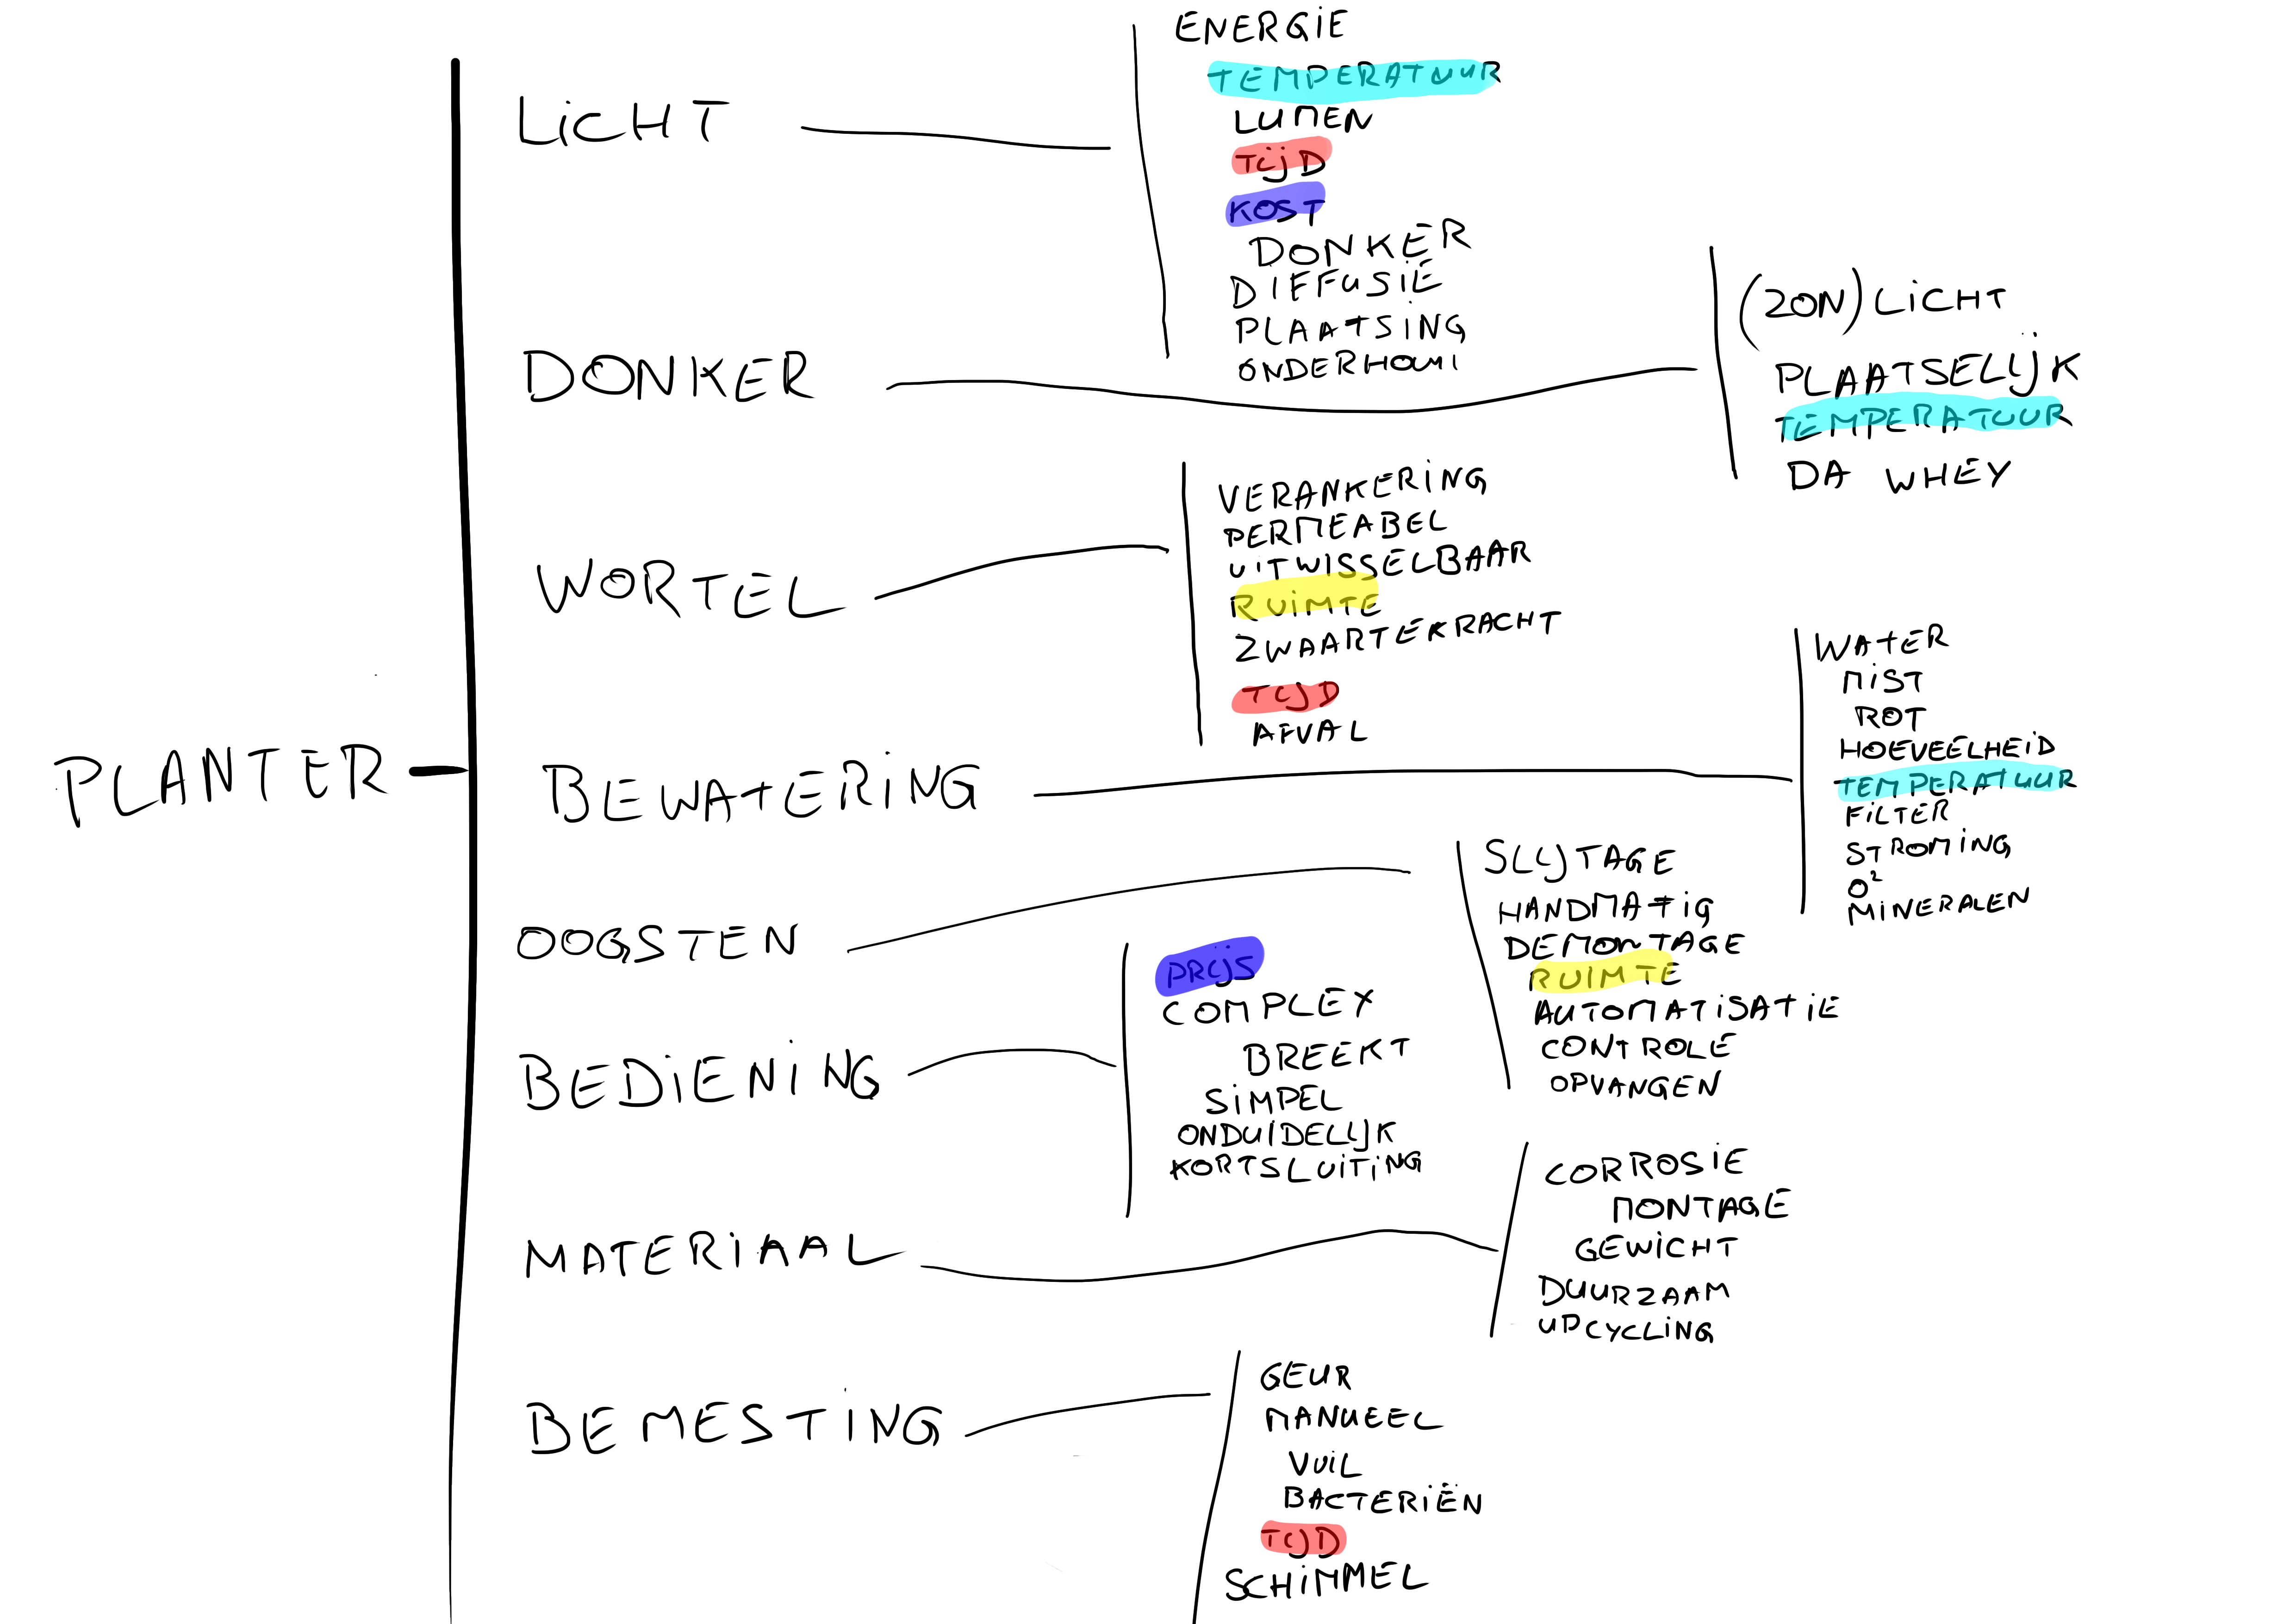 PLANTER
LiCHT
ENERGiE
TEMPERATUUR
LUMEN
TijD
KOST
DONKER
DIFFUSIE
PLAATSiNG
DONKER
(ZON)LiCHT
PLAATSELijK
TEMPERATUUR
DA WHEY
WORTEL
VERANKERiNG
PERMEABEL
UITWISSELBAAR
RUiMTE
ZWAARTEKRACHT
TijD
AFVAL
BEWATERiNG
WATER
MiST
ROT
HOEVEELHEiD
TEMPERATUUR
FiLTER
STROMiNG
O²
MiNERALEN
OOGSTEN
SLijTAGE
HANDMATiG
DEMONTAGE
RUIMTE
AUTOMATiSATiE
CONTROLE
OPVANGEN
BEDiENiNG
PRijS
COMPLEX
BREEKT
SiMPEL
ONDUIDELijK
KORTSLUiTiNG
MATERiAAL
CORROSiE
MONTAGE
GEWiCHT
DUURZAAM
UPCYCLiNG
BEMESTiNG
GEUR
MANUEEL
VUiL
BACTERiËN
TijD
SCHiMMEL